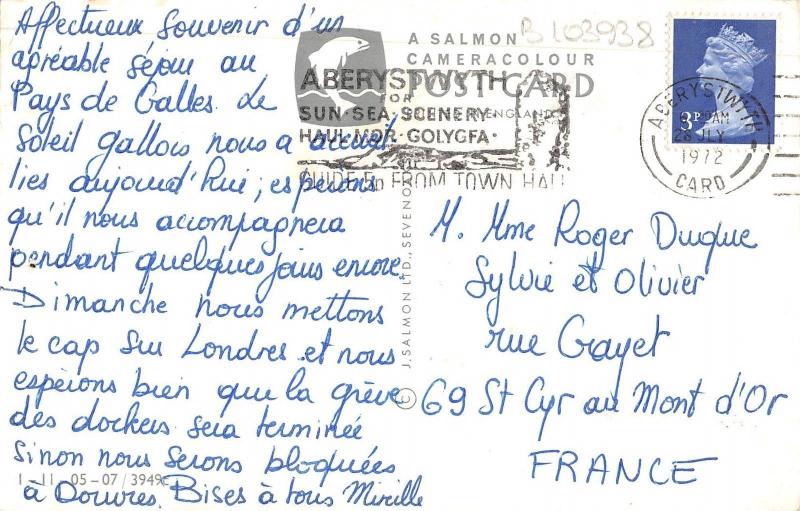 Affectueux souvenir d'un
agréable séjour au
Pays de Galles. Le
Soleil gallois nous a accueil
lies aujourd'hui ; espérons
qu'il nous accompagnera
pendant quelques jours encore.
Dimanche nous mettons
le cap sur Londres et nous
espérons bien que la grève
des dockers sera terminée
sinon nous serons bloquées
à Douvres. Bises à tous Mireille
1-11-05-07/3949c
B 103938
A SALMON
CAMERACOLOUR
POST CARD
ABERYSTWYTH
FOR
SUN·SEA·SCENERY
ENGLAND
HAUL·MÔR·GOLYGFA·
GUIDE 5p FROM TOWN HALL
© J. SALMON LTD., SEVENOAKS
3P
ABERYSTWYTH
AM
28 JLY
1972
CARD
M. Mme Roger Duque
Sylvie et Olivier
rue Gayet
69 St Cyr au Mont d'Or
FRANCE